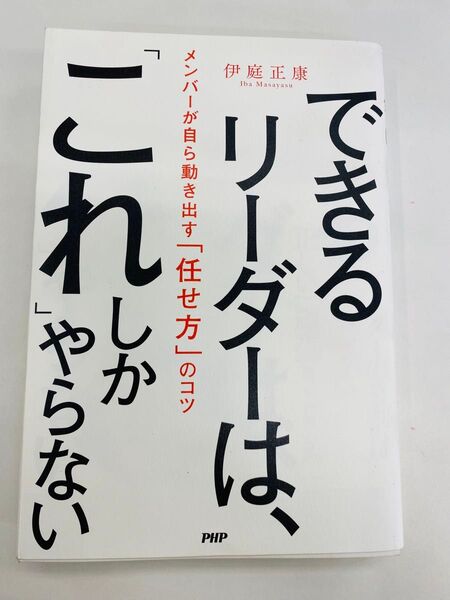 できる
リーダーは、
「これ」しか
やらない
メンバーが自ら動き出す「任せ方」のコツ
伊庭正康
Iba Masayasu
PHP